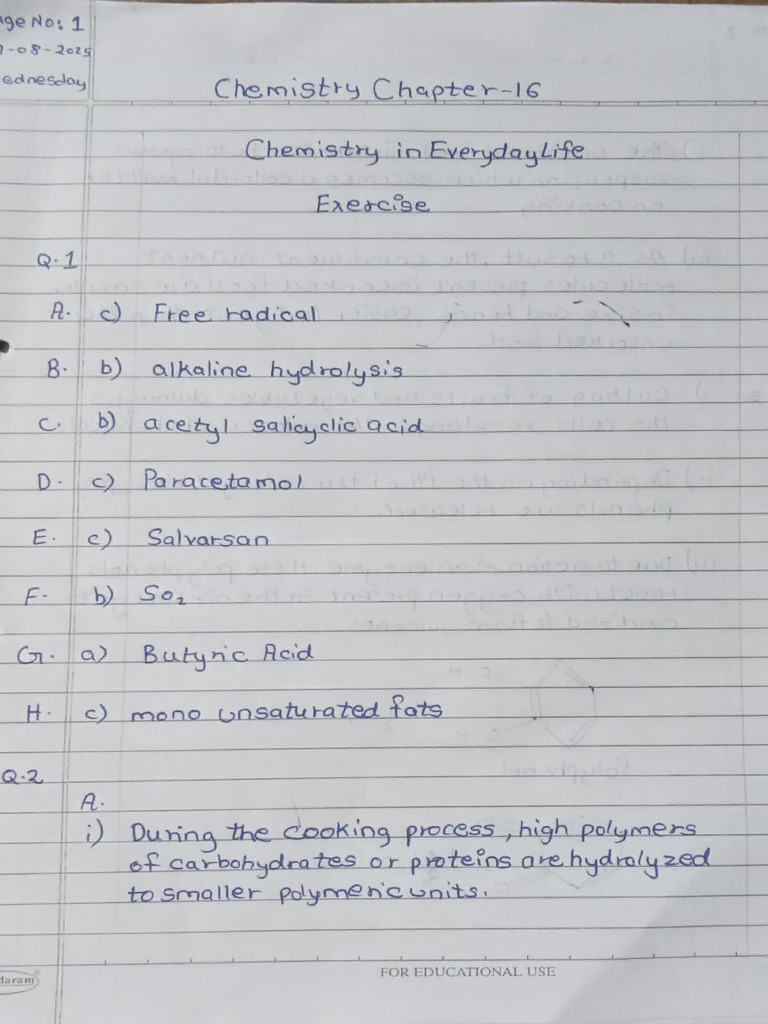 age No: 1
-08-2025
ednesday
Chemistry Chapter-16
Chemistry in Everyday Life
Exercise
Q.1
A. c) Free radical
B. b) alkaline hydrolysis
C. b) acetyl salicyclic acid
D. c) Paracetamol
E. c) Salvarsan
F. b) SO₂
G. a) Butyric Acid
H. c) mono unsaturated fats
Q.2
A.
i) During the cooking process, high polymers
of carbohydrates or proteins are hydrolyzed
to smaller polymeric units.
FOR EDUCATIONAL USE
daram